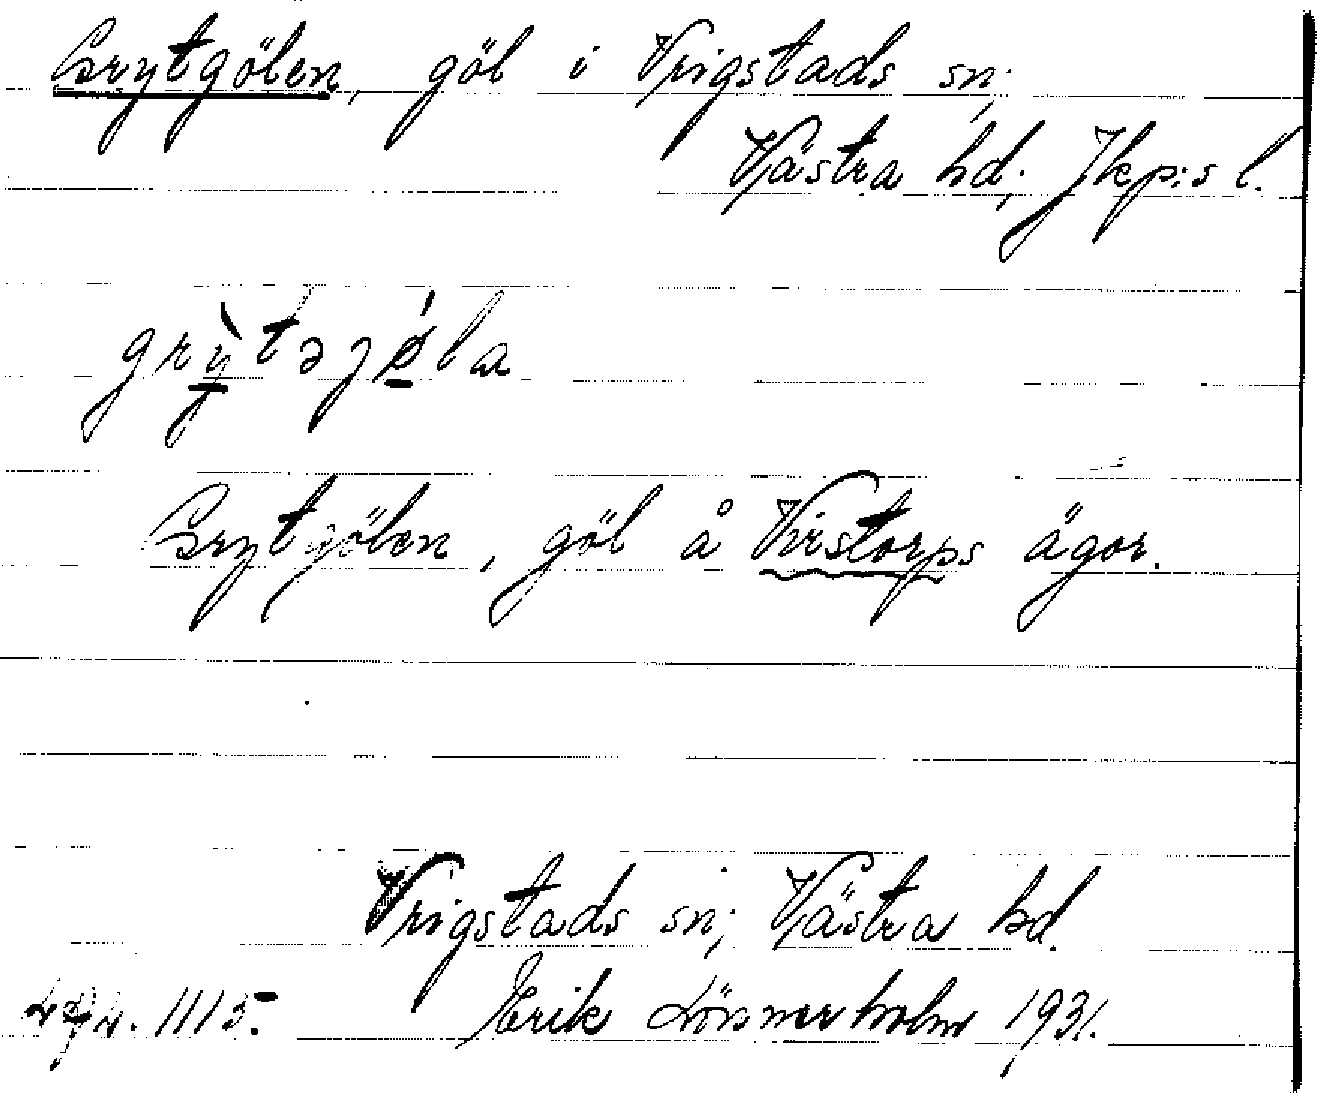 Grytgölen, göl i Vrigstads sn;
Västra hd; Jkp:s l.
grỳtəjǿla
Grytgölen, göl å Virstorps ägor.
Vrigstads sn; Västra hd.
1115. Erik Lönnerholm 1931.